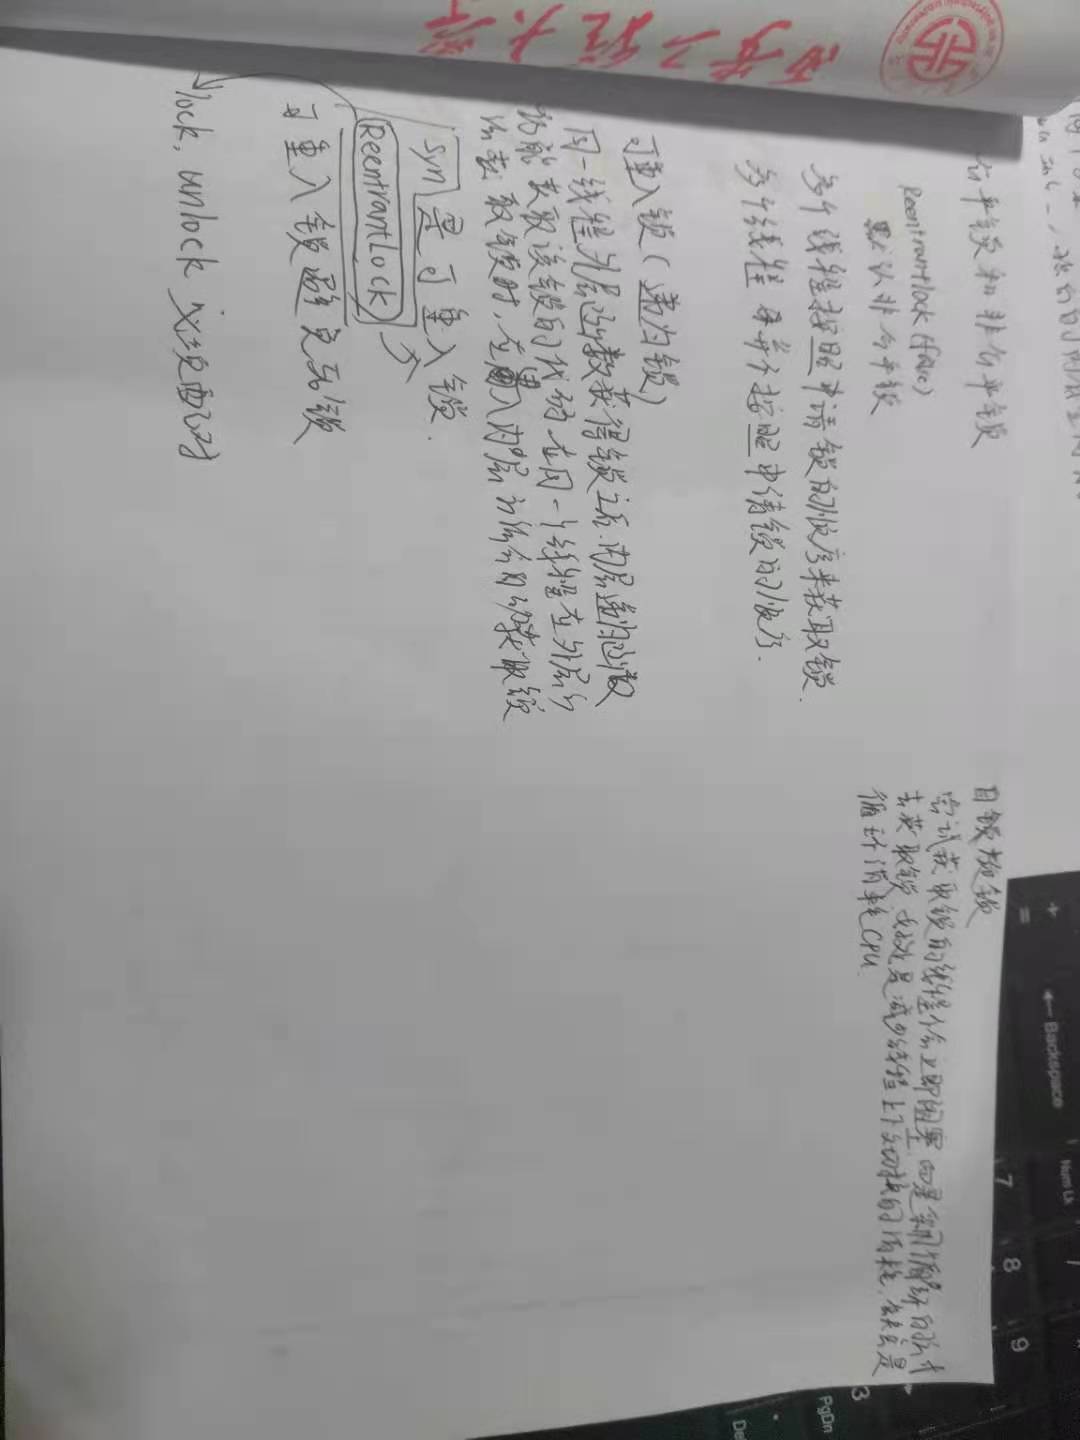 西安工程大学
公平锁和非公平锁
Reentrantlock (false)
默认非公平锁
多个线程按照申请锁的顺序来获取锁.
多个线程 并不按照申请锁的顺序.
可重入锁(递归锁)
同一线程外层函数获得锁之后.内层递归函数
仍能获取该锁的代码.在同一个线程在外层方
法获取锁时,在进入内层方法会自动获取锁
syn 是可重入锁.
ReentrantLock
可重入锁 避免死锁
lock, unlock 必须配对
自旋锁
尝试获取锁的线程不会立即阻塞 而是采用循环的方式
去获取锁 好处是减少线程上下文切换的消耗,缺点是
循环消耗CPU.
+
=
← Backspace
Num Lk
/
7
8
9
3
PgDn
.
De